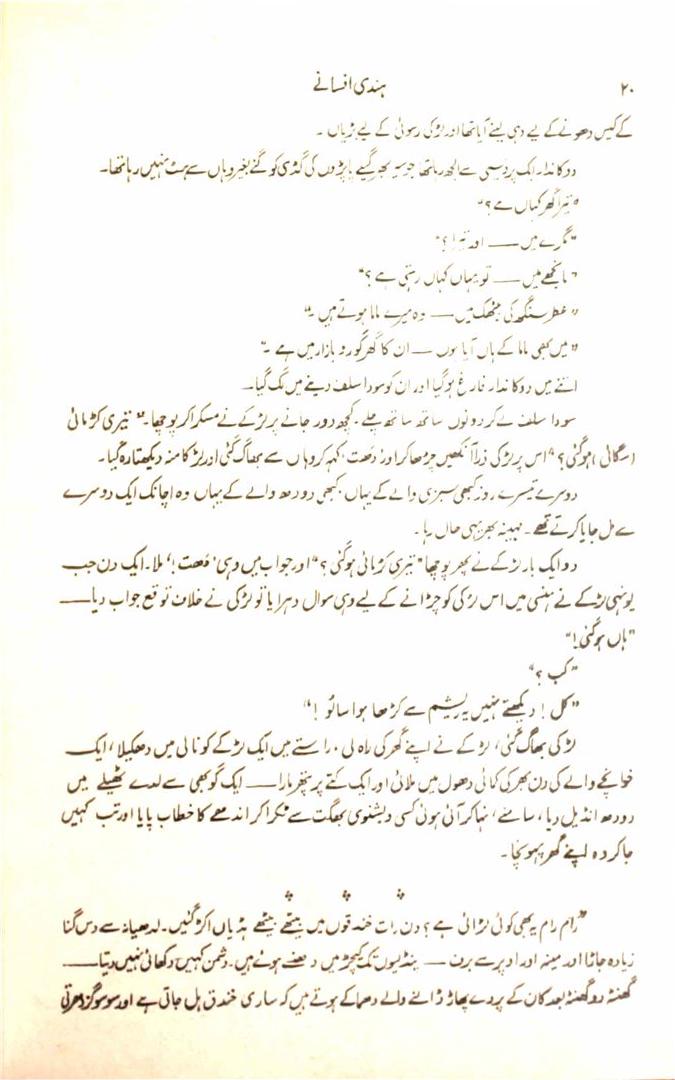 ۲۰ ہندی افسانے
کے کیس دھونے کے لیے دہی لینے آیا تھا اور لڑکی رسوئی کے لیے بڑیاں ۔
دوکاندار ایک پردیسی سے الجھ رہا تھا جو سیر بھر گیلے پاپڑوں کی گڈی کو گنے بغیر وہاں سے ہٹ نہیں رہا تھا۔
"تیرا گھر کہاں ہے؟"
"مگرے میں —— اور تیرا؟"
"مانجھے میں —— تو یہاں کہاں رہتی ہے؟"
"عطر سنگھ کی بیٹھک میں —— وہ میرے ماما ہوتے ہیں ۔"
"میں بھی ماما کے ہاں آیا ہوں —— ان کا گھر گورو بازار میں ہے ۔"
اتنے میں دوکاندار فارغ ہوگیا اور ان کو سودا سلف دینے میں لگ گیا۔
سودا سلف لے کر دونوں ساتھ ساتھ چلے۔ کچھ دور جانے پر لڑکے نے مسکرا کر پوچھا۔ "تیری کڑمائی
(سگائی) ہوگئی؟" اس پر لڑکی ذرا آنکھیں چڑھا کر اور 'دھت' کہہ کر وہاں سے بھاگ گئی اور لڑکا منہ دیکھتا رہ گیا۔
دوسرے تیسرے روز کبھی سبزی والے کے یہاں، کبھی دودھ والے کے یہاں وہ اچانک ایک دوسرے
سے مل جایا کرتے تھے۔ مہینہ بھر یہی حال رہا۔
دو ایک بار لڑکے نے پھر پوچھا "تیری کڑمائی ہوگئی؟" اور جواب میں وہی 'دھت!' ملا۔ ایک دن جب
یونہی لڑکے نے ہنسی میں اس لڑکی کو چڑانے کے لیے وہی سوال دہرایا تو لڑکی نے خلاف توقع جواب دیا ——
"ہاں ہوگئی!"
"کب؟"
"کل! دیکھتے نہیں یہ ریشم سے کڑھا ہوا سالو!"
لڑکی بھاگ گئی، لڑکے نے اپنے گھر کی راہ لی۔ راستے میں ایک لڑکے کو نالی میں دھکیلا، ایک
خوانچے والے کی دن بھر کی کمائی دھول میں ملائی اور ایک کتے پر پتھر مارا —— ایک گوبھی سے لدے ٹھیلے میں
دودھ انڈیل دیا، سامنے، نہا کر آئی ہوئی کسی ویشنوی بھگت سے ٹکرا کر اندھے کا خطاب پایا اور تب کہیں
جاکر وہ اپنے گھر پہونچا۔
"رام رام یہ بھی کوئی لڑائی ہے؟ دن رات خندقوں میں بیٹھے بیٹھے ہڈیاں اکڑ گئیں۔ لدھیانہ سے دس گنا
زیادہ جاڑا اور مینہ اور اوپر سے برف —— پنڈلیوں تک کیچڑ میں دھنسے ہوئے ہیں۔ دشمن کہیں دکھائی نہیں دیتا ——
گھنٹہ دو گھنٹہ بعد کان کے پردے پھاڑ ڈالنے والے دھماکے ہوتے ہیں کہ ساری خندق ہل جاتی ہے اور سو سو گز دھرتی